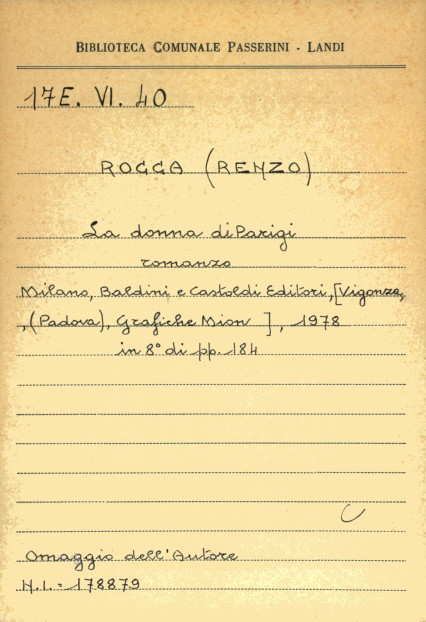 BIBLIOTECA COMUNALE PASSERINI - LANDI
17E. VI. 40
ROCCA (RENZO)
La donna di Parigi
romanzo
Milano, Baldini e Castoldi Editori, [Vigonza,
, (Padova), Grafiche Mion ], 1978
in 8° di pp. 184
C
Omaggio dell'Autore
N.I. = 178879